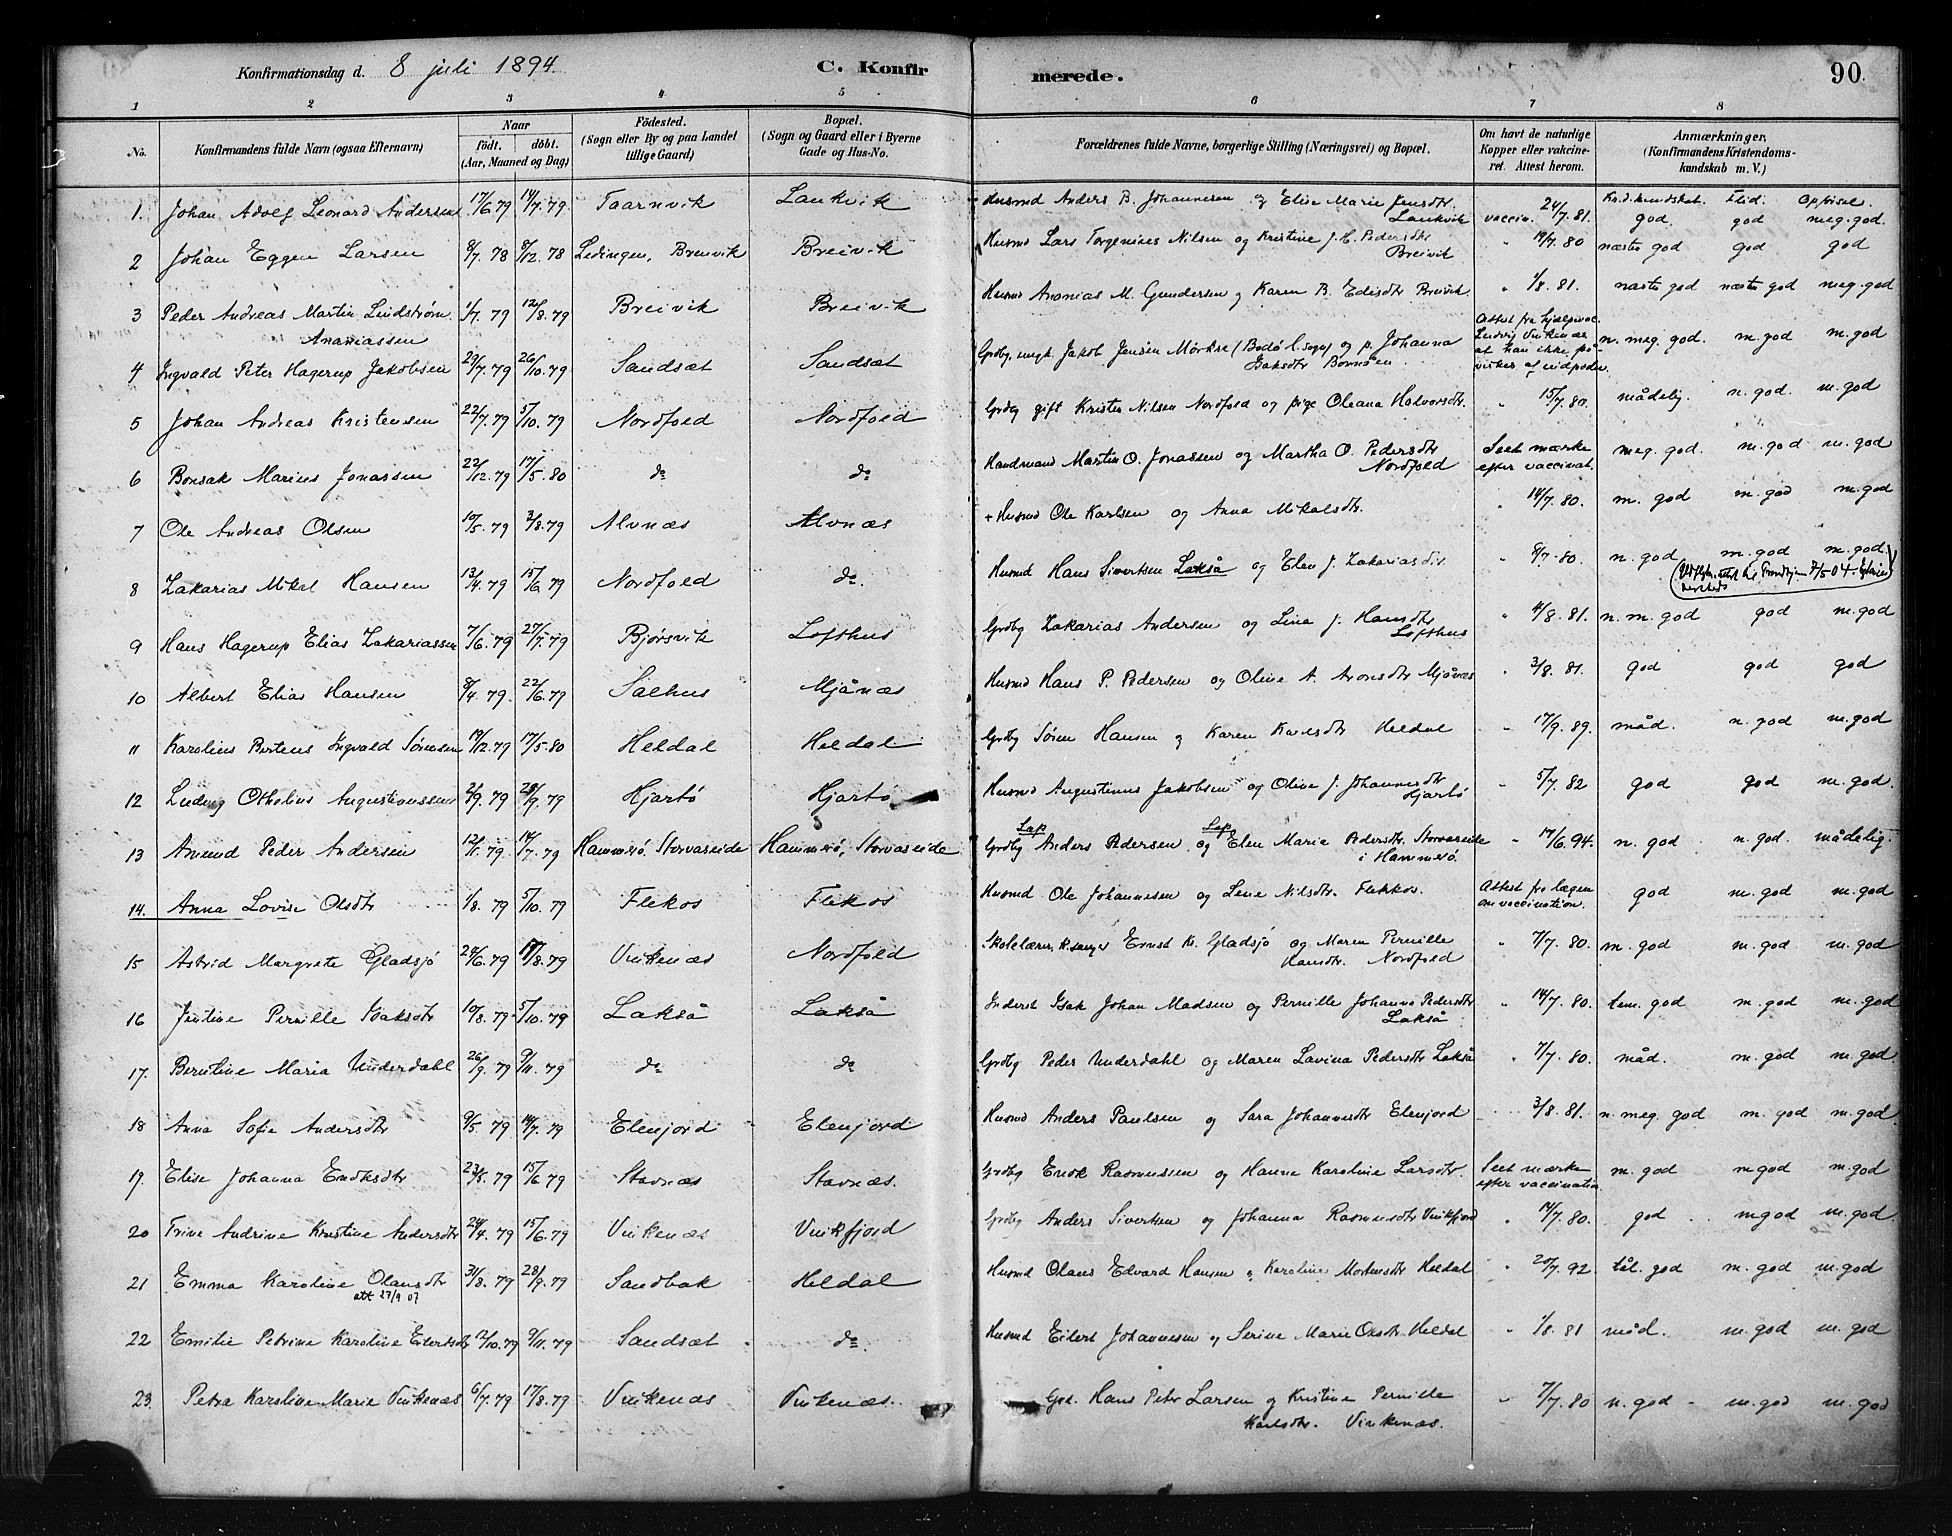 Konfirmationsdag d. 8 juli 1894. C. Konfirmerede. 90.
1 2 3 4 5 6 7 8
No. Konfirmandens fulde Navn (ogsaa Efternavn) Naar født. døbt. (Aar, Maaned og Dag) Fødested. (Sogn eller By og paa Landet tillige Gaard) Bopæl. (Sogn og Gaard eller i Byerne Gade og Hus-No. Forældrenes fulde Navne, borgerlige Stilling (Næringsvei) og Bopæl. Om havt de naturlige Kopper eller vakcineret. Attest herom. Anmærkninger, (Konfirmandens Kristendomskundskab m. V.)
Kr.d.kundskab. Flid. Opførsel.
1. Johan Adolf Leonard Andersen 17/6 79 14/7. 79. Taarnvik Lankvik Husmd Anders B. Johannesen og Elise Marie Jensdtr. Lankvik vaccin. 24/7. 81. god god meg. god.
2 Johan Eggen Larsen 8/7. 78 8/12. 78 Lødingen, Breivik Breivik Husmd Lars Torgenines Nilsen og Kristine J. C. Pedersdtr Breivik " 19/7. 80 næsten god god god
3 Peder Andreas Martin Lindstrøm Ananiassen 1/7. 79 12/8. 79 Breivik Breivik Husmd Ananias M. Gundersen og Karen B. Edisdtr Breivik " 1/8. 81. næsten god næsten god meg. god
4 Ingvald Peter Hagerup Jakobsen 29/7. 79 26/10. 79 Sandsæt Sandsæt Grdbg. ungk. Jakob Jensen Mørkve (Bodø l. sogn) og p. Johanna Isaksdtr Bonnaaen. Attest fra hjælpevac. Ludvig Vinkenæs at han ikke paavirkes af indpoden. n. meg. god. m. god m. god
5 Johan Andreas Kristensen 22/7. 79 5/10. 79 Nordfold Nordfold Grdbg gift Kristen Nilsen Nordfold og pige Oleana Halvorsdtr. " 15/7. 80. mådelig. n. god. m. god
6 Bonsak Marius Jonassen 22/12. 79 17/5. 80 do do Handemand Martin O. Jonassen og Martha O. Pedersdtr Nordfold Seet mærke efter vaccinat. meg. god. m. god m. god
7 Ole Andreas Olsen 10/5. 79 3/8. 79 Alvnæs Alvnæs + Husmd Ole Karlsen og Anna Mikalsdtr. " 14/7. 80. m. god m. god m. god
8 Zakarias Mikal Hansen 13/4. 79 15/6. 79 Nordfold do. Husmd Hans Sivertsen Lakså og Elen J. Zakariasdtr " 8/7. 80 n. god m. god m. god
9 Hans Hagerup Elias Zakariassen 7/6. 79 27/7. 79 Bjørsvik Lofthus Grdbg Zakarias Andersen og Lina J. Hansdtr Lofthus " 4/8. 81. n. m. god god m. god
10 Albert Elias Hansen 8/4. 79 22/6. 79 Sælhus Mjånæs Husmd Hans P. Pedersen og Oline A. Aronsdtr Mjånæs " 3/8. 81. god god god
11 Karolius Bertens Ingvald Sørensen 19/12. 79 17/5. 80 Heldal Heldal Grdbg Søren Hansen og Karen Karlsdtr Heldal " 17/9. 89. måd. n. god m. god
12 Ludvig Othelius Augustinussen 2/9. 79 28/9. 79 Hjartø Hjartø Husmd Augustinus Jakobsen og Oline J. Johannesdtr Hjartø " 5/7. 82 god god m. god.
13 Amund Peder Andersen 12/1. 79. 14/7. 79 Hammerø. Storvaseide Hammerø, Storvaseide Grdbg Lap Anders Pedersen og Lap Elen Maria Pedersdtr. Storvaseide i Hammerø. " 17/6. 94. n. god n. god. mådelig.
14. Anna Lovise Olsdtr 1/8. 79 5/10. 79 Flekos Flekos Husmd Ole Johannesen og Lene Nilsdtr. Flekkos. Attest fra lægen om vaccination. god m. god m. god
15 Astrid Margrete Gladsjø 29/6. 79 17/8. 79 Vinkenæs Nordfold Skolelærer, k.sanger Ernst K. Gladsjø og Maren Pernille Hansdtr. Nordfold " 7/7. 80. m. god m. god m. god
16 Justine Pernille Isaksdtr 10/8. 79 5/10. 79 Lakså Lakså Inderst Isak Johan Madsen og Pernille Johanna Pedersdtr Lakså " 14/7. 80. tem. god m. god m. god
17. Berntine Maria Underdahl 26/9. 79 9/11. 79 do do Grdbg Peder Underdahl og Maren Lavina Pedersdtr Lakså " 7/7. 80. måd. m. god m. god.
18 Anna Sofie Andersdtr 9/5. 79 14/7. 79 Elenjord Elenjord Husmd Anders Paulsen og Sara Johannesdtr Elenjord 3/8. 81. n. meg. god m. god m. god
19. Elise Johanna Enoksdtr 23/5. 79 15/6. 79 Stavnæs Stavnæs. Grdbg Enok Rasmussen og Hanna Karoline Larsdtr. Seet mærke efter vaccination m. god m god m. god
20 Trine Andrine Kristine Andersdtr 24/4. 79 15/6. 79 Vinkenæs Vinkfjord Grdbg Anders Sivertsen og Johanna Rasmusdtr Vinkfjord " 14/7. 80. god m god m. god
21 Emma Karoline Olausdtr 31/8. 79 28/9. 79 Sandbak Heldal Husmd Olaus Edvard Hansen og Karoline Mortensdtr Heldal " 20/7. 92. tål. god m. god m. god
att 27/9 07
22 Emilie Petrine Karoline Eilertsdtr 12/10. 79 9/11. 79 Sandsæt do. Husmd Eilert Johannesen og Serine Marie Olsdtr Heldal " 1/8. 81 måd. m. god m. god
23. Petra Karoline Marie Vinkenæs 6/7. 79 17/8. 79 Vinkenæs Vinkenæs. Grd. Hans Peter Larsen og Kristine Pernille Karlsdtr. Vinkenæs. " 7/7. 80 n. god - m. god m. god